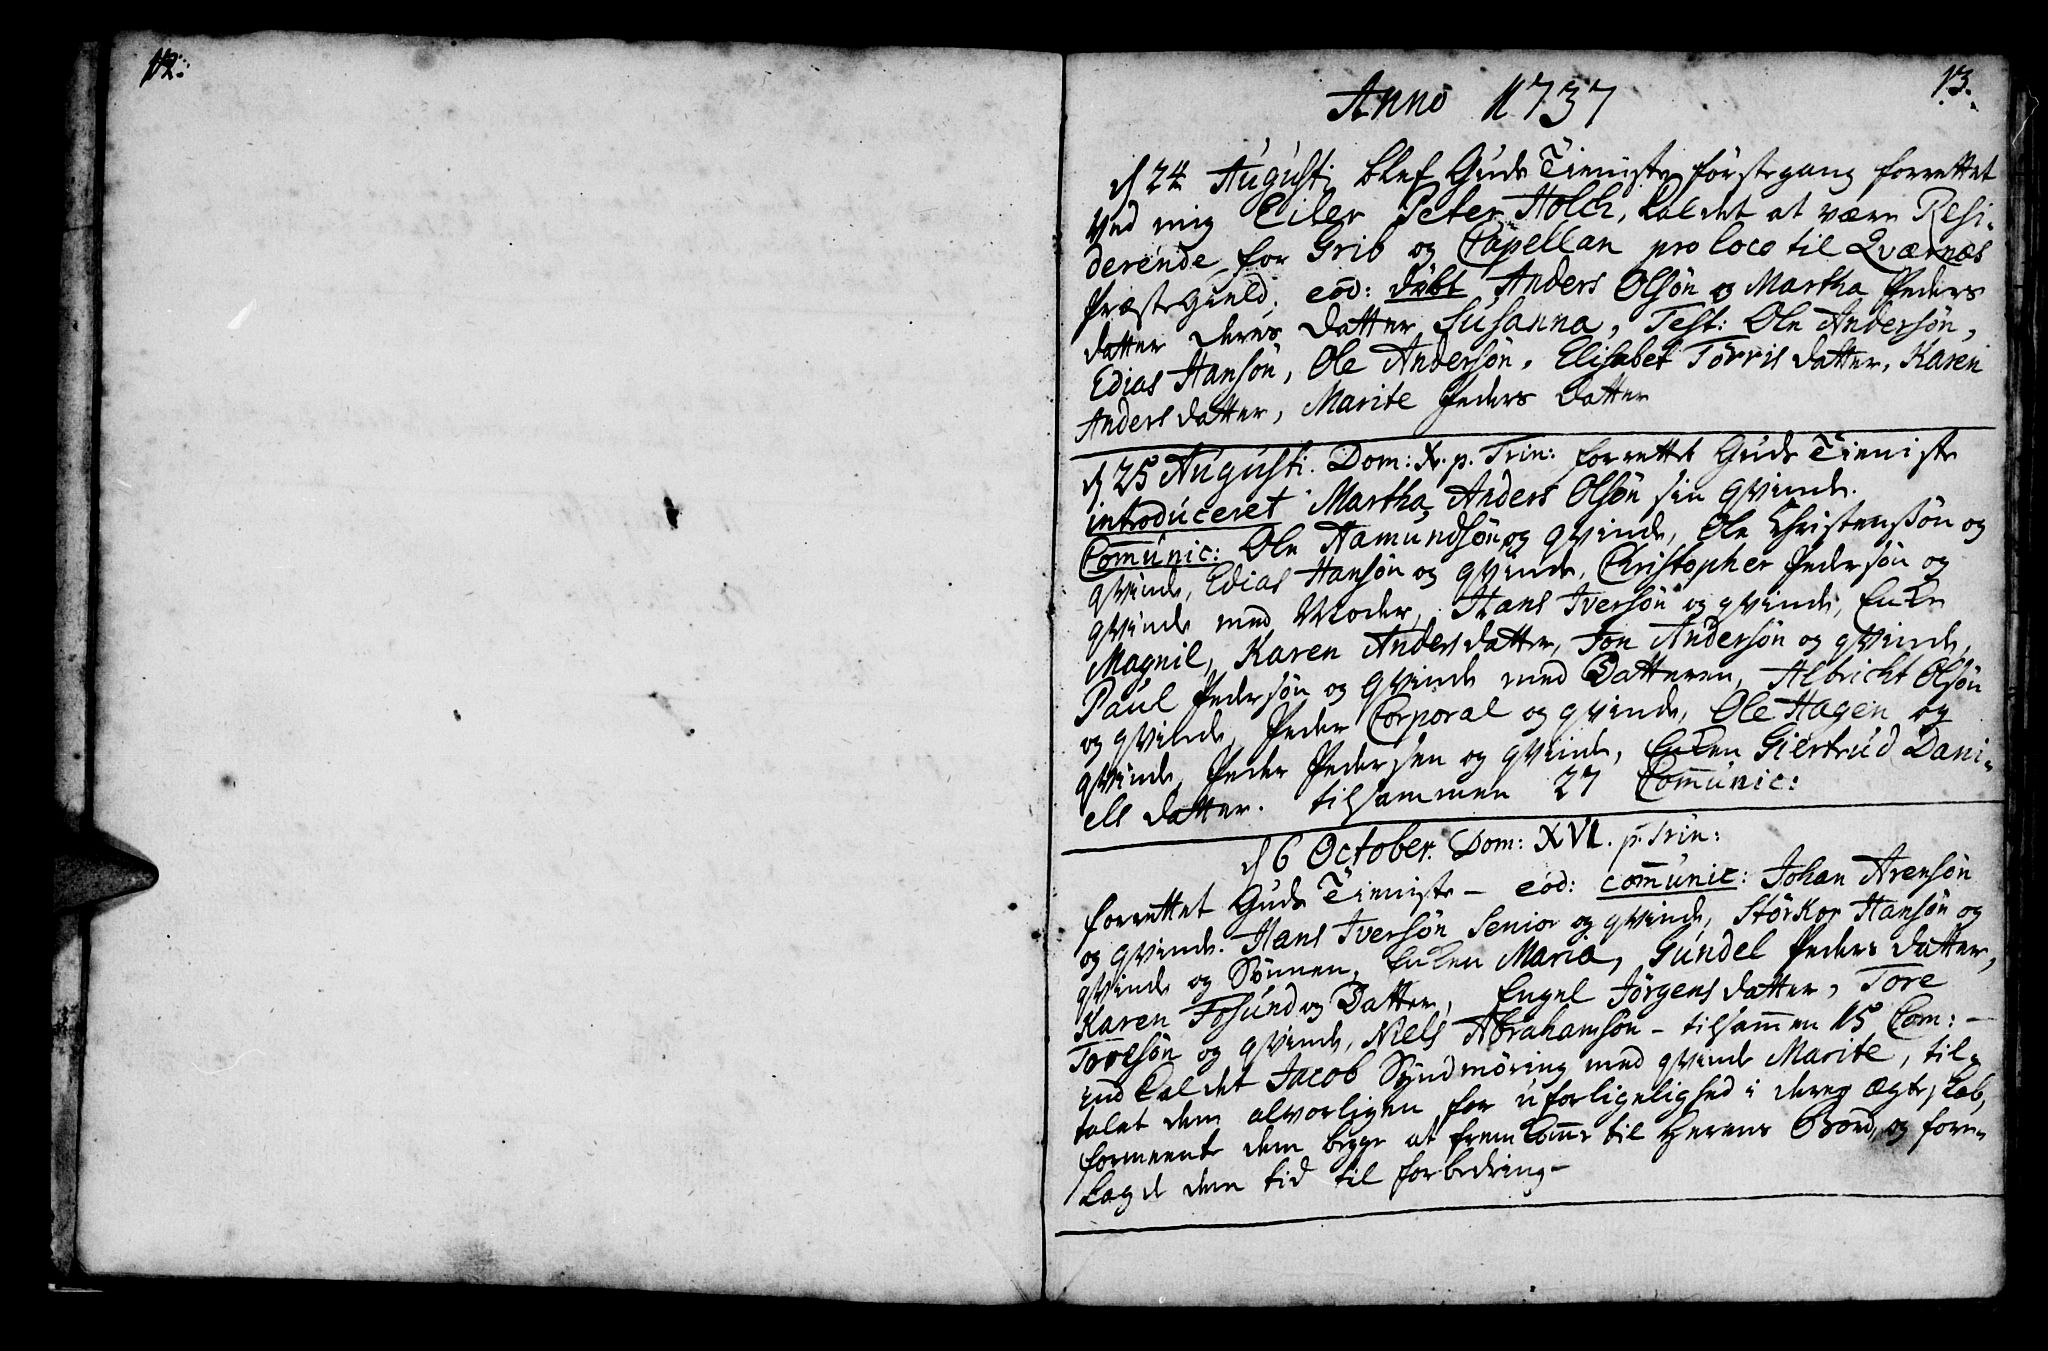 12.
13.
Anno 1737
d 24 Augusti blef Guds Tieniste förstegang forrettet
ved mig Eiler Peter Holck, kaldet at være Resi-
derende for Grib og Capellan pro loco til Qværnæs
Præstegield. eod: döbt Anders Olsön og Martha Peders
datter deres datter Susanna, Test: Ole Andersön,
Edias Hansön, Ole Andersön, Elisabet Törris datter, Karen
Anders datter, Marite Peders datter
d 25 Augusti. Dom: X. p. Trin: forrettet Guds Tieniste
introduceret Martha Anders Olsön sin qvinde.
Com̄unic: Ole Hamundsön og qvinde, Ole Christensön og
qvinde, Edias Hansön og qvinde, Christopher Pedersön og
qvinde med Moder, Hans Iversön og qvinde, Enke
Magnil, Karen Andersdatter, Jon Andersön og qvinde,
Paul Pedersön og qvinde med Datteren, Albricht Olsön
og qvinde, Peder Corporal og qvinde, Ole Hagen og
qvinde, Peder Pedersen og qvinde, Enken Giertrud Dani-
els datter. tilsammen 27 Com̄unic:
d 6 October. Dom: XVI. p. Trin:
forrettet Guds Tieniste – eod: com̄unic: Johan Arensön
og qvinde. Hans Iversön Senior og qvinde, Störkor Hansön og
qvinde og Sönnen, Enken Maria, Gundel Peders datter,
Karen Fosund og Datter, Engel Jörgens datter, Tore
Toresön og qvinde, Niels Abrahamsön – tilsam̄en 15 Com: –
indkaldet Jacob Syndmöring med qvinde Marite, til-
talet dem alvorligen for uforligelighed i deres ægteskab,
formeente dem begge at fremkom̄e til Herens Bord, og fore-
lagde dem tid til forbedring –